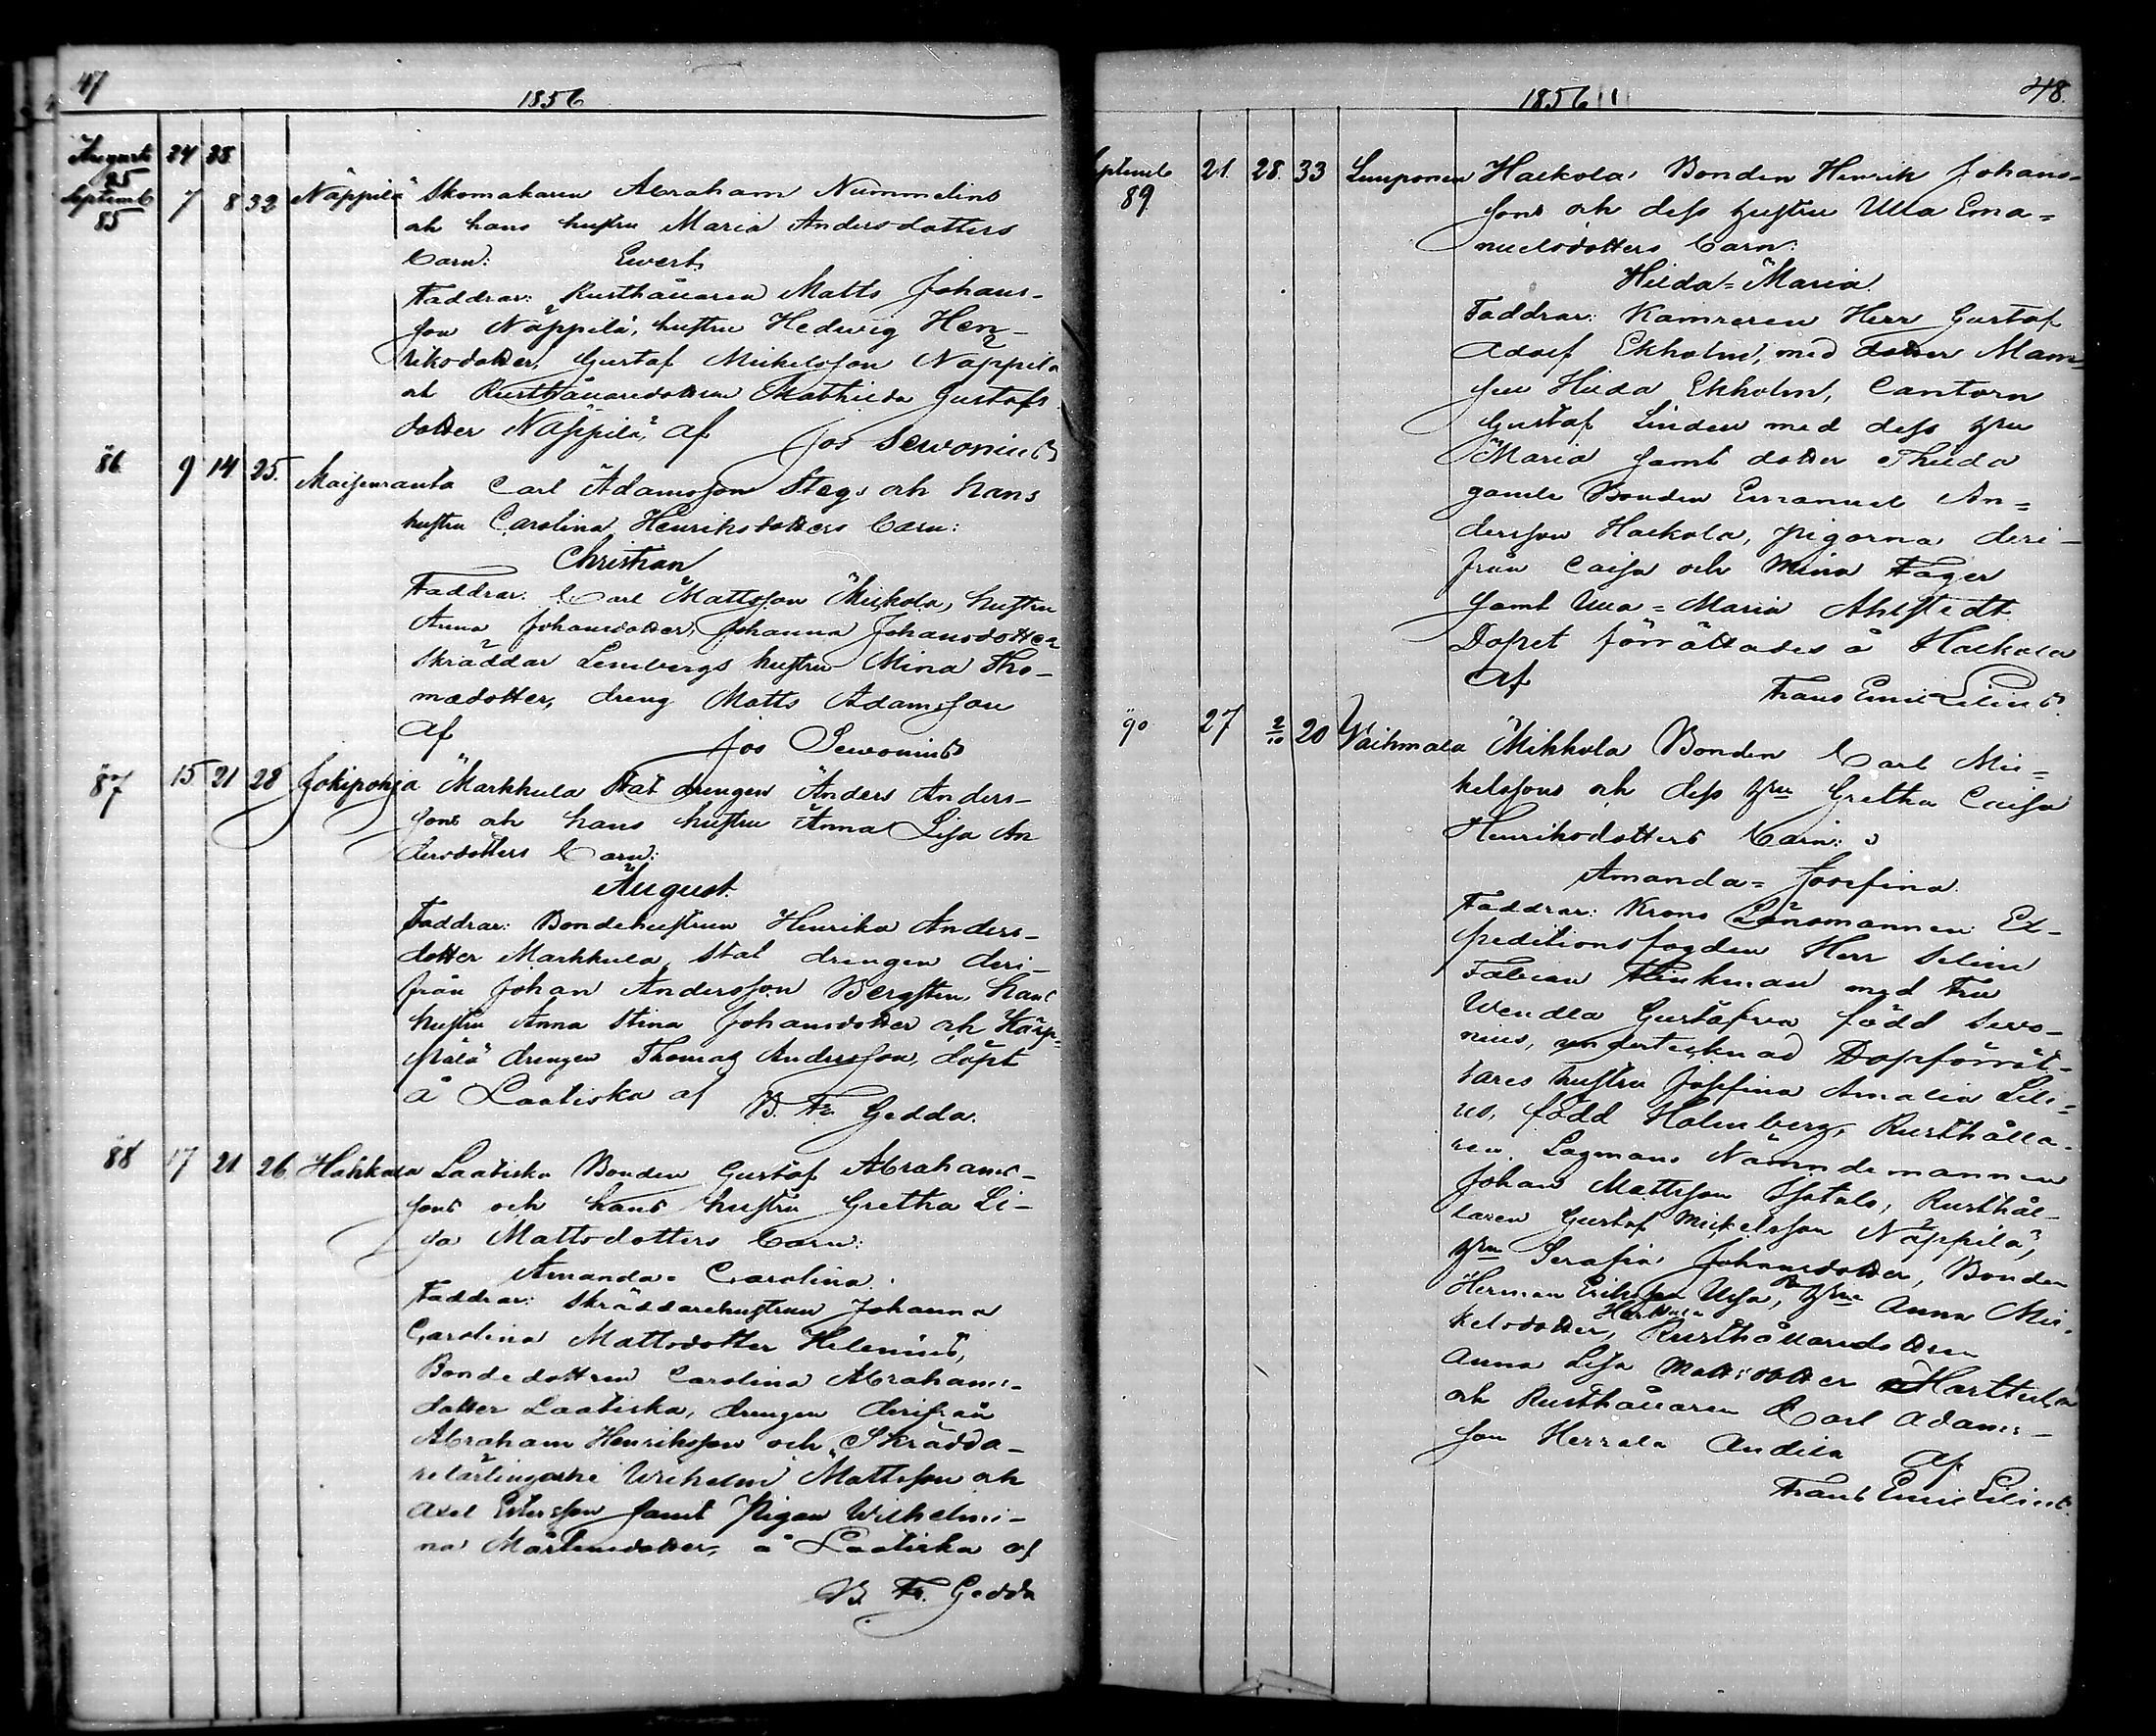 47
1856
Augusti 24 25
25
Septemb 7 8 32 Näppilä Skomakaren Abraham Nummelins
85
och hans hustru Maria Andersdotters
barn: Ewert
Faddrar: Rusthållaren Matts Johans-
son Näppilä, hustru Hedwig Hen-
riksdotter, Gustaf Mickelsson Näppilä
och Rusthållaredottren Mathilda Gustafs
dotter Näppilä, af Jos Sewonius
86 9 14 25. Maisenranta Carl Adamsson Stegs och hans
hustru Carolina Henriksdotters barn:
Christian
Faddrar: Carl Mattsson Mickola, hustru
Anna Johansdotter, Johanna Johansdotter
skräddar Lembergs hustru Mina Tho-
masdotter, dreng Matts Adamsson
af Jos Sewonius
87 15 21 28 Jokipohja Markkula Stat drengen Anders Anders-
sons och hans hustru Anna Lisa An
dersdotters barn:
August.
Faddrar: Bondehustrun Henrika Anders-
dotter Markkula, Stat drengen deri-
från Johan Andersson Bergsten, hans
hustru Anna Stina Johansdotter och
drengen Thomas Andersson, döpt
å Laatiska af B. Fr. Gedda.
88 17 21 26 Hahkala Laatiska Bonden Gustaf Abrahams-
sons och hans hustru Gretha Li-
sa Mattsdotters barn:
Amanda-Carolina.
Faddrar: Skräddarehustrun Johanna
Carolina Mattsdotter Helenius,
Bondedottren Carolina Abrahams-
dotter Laatiska, drengen derifrån
Abraham Henriksson och Skrädda-
relärlingarne Wilhelm Mattsson och
Axel Ericsson samt Pigan Wilhelmi-
na Mårtensdotter, å Laatiska af
B. Fr. Gedda
1856
48.
Septemb 21. 28. 33 Lumponen Hackola Bonden Henrik Johans-
89
sons och dess hustru Ulla Ema=
nuelsdotters barn:
Hilda=Maria
Faddrar: Kamreren Herr Gustaf
Adolf Ekholm, med dotter Mam-
sell Hilda Ekholm, Cantorn
Gustaf Linden med dess hru
Maria samt dotter Thilda
gamle Bonden Emanuel An=
dersson Hackola, pigorna deri-
från Caisa och Mina Fager
samt Ulla=Maria Ahlstedt
Dopet förrättades å Hackola
af Frans Emil Lilius.
90 27 2/10 20 Waihmala Mikkola Bonden Carl Mic=
kelssons och dess hru Gretha Caisa
Henriksdotters barn:
Amanda=Josefina.
Faddrar: Krono Länsmannen Ex-
peditionsfogden Herr Selim
Fabian Flinkman med Fru
Wendla Gustafva född Sevo-
nius, undertecknad Dopförrät-
tares hustru Josefina Amalia Lili=
us, född Holmberg, Rusthålla-
ren Lagmans Nämndemannen
Johan Mattsson Isotalo, Rusthål-
laren Gustaf Mickelsson Näppilä,
hru Serafia Johansdotter, Bonden
Herman Eriksson, hru Anna Mic-
kelsdotter, Rusthållaredottren
Anna Lisa Mattsdotter Harttula
och Rusthållaren Carl Adams-
son Herrala Andila af
Frans Emil Lilius.